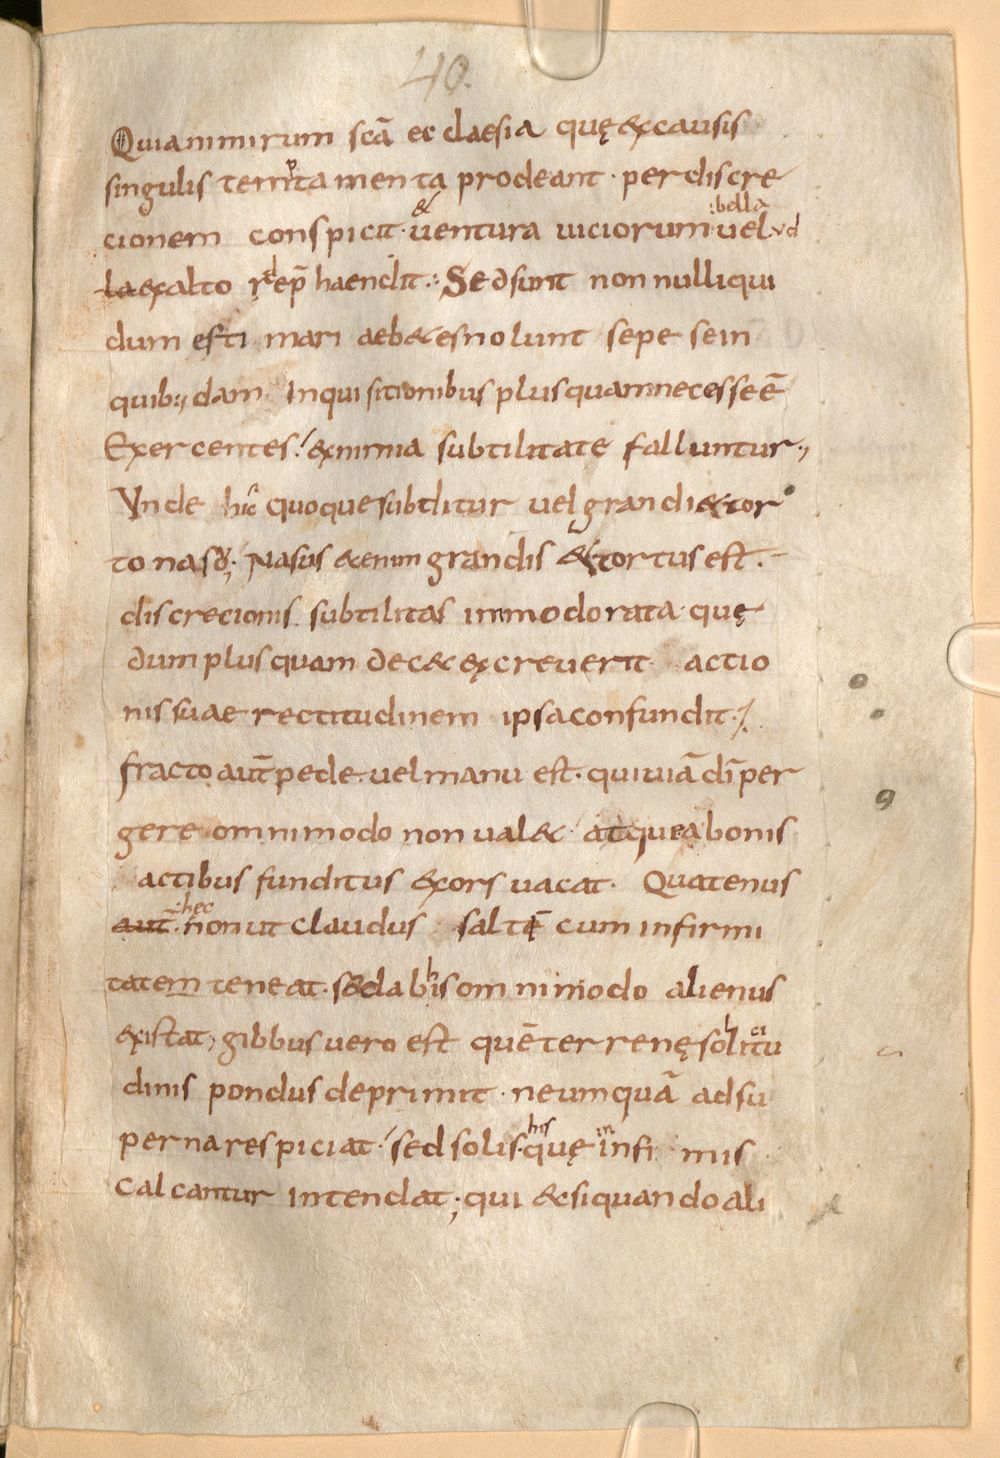 40.
Quia nimirum scā ecclaesia quę excausis
singulis temptamenta prodeant · perdiscre
cionem conspicit · & ventura uiciorum :bella uel
la exalto rep̄haendit : Sed sunt non nulli qui
dum esti mari aeb&es nolunt sepe se in
quib; dam Inquisitionibus plus quam necesse ē
Exercentes ! ex nimia subtilitate falluntur ;
Vnde hic quoque subditur uel grandi & tor
to naso ; Nasus &enim grandis & tortus est .
discrecionis subtilitas inmodorata quę
dum plus quam dec& excreuerit actio
nis suae rectitudinem ipsa confundit ./
fracto aut̄ pede uel manu est · qui uiā dī per
gere omnimodo non ual& atque a bonis
actibus funditus exors uacat · Quatenus
aut̄ :hec non ut claudus saltē cum infirmi
tatem teneat · sed ab his omnimodo alienus
existat ; gibbus uero est quē terrenę sollicitu
dinis pondus deprimit · ne umquā ad su
perna respiciat ! sed solis his quę in infimis
calcantur Intendat ; qui & si quando ali